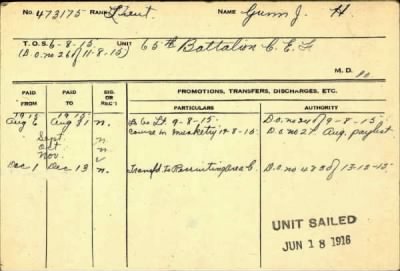 No. 473175 RANK Lieut. NAME Gunn J. H
T.O.S. 6-8-15 UNIT 65th Battalion C.E.F
(D.O. no 26 of 11-8-15)
M. D. 10
PAID FROM PAID TO SIG. OR REC'T PROMOTIONS, TRANSFERS, DISCHARGES, ETC.
PARTICULARS AUTHORITY
1915 1915
Aug 6 Aug 31 n. Lt 9-8-15. D.O. no 24 of 9-8-15
Sept. n. Course in Musketry 17-8-15. D.O. no 27 Aug. paylist.
Oct n
Nov. v
Dec 1 Dec 13 n. Transf'd to Recruiting Area C. D.O. no 483 of 13-12-15.
UNIT SAILED
JUN 18 1916